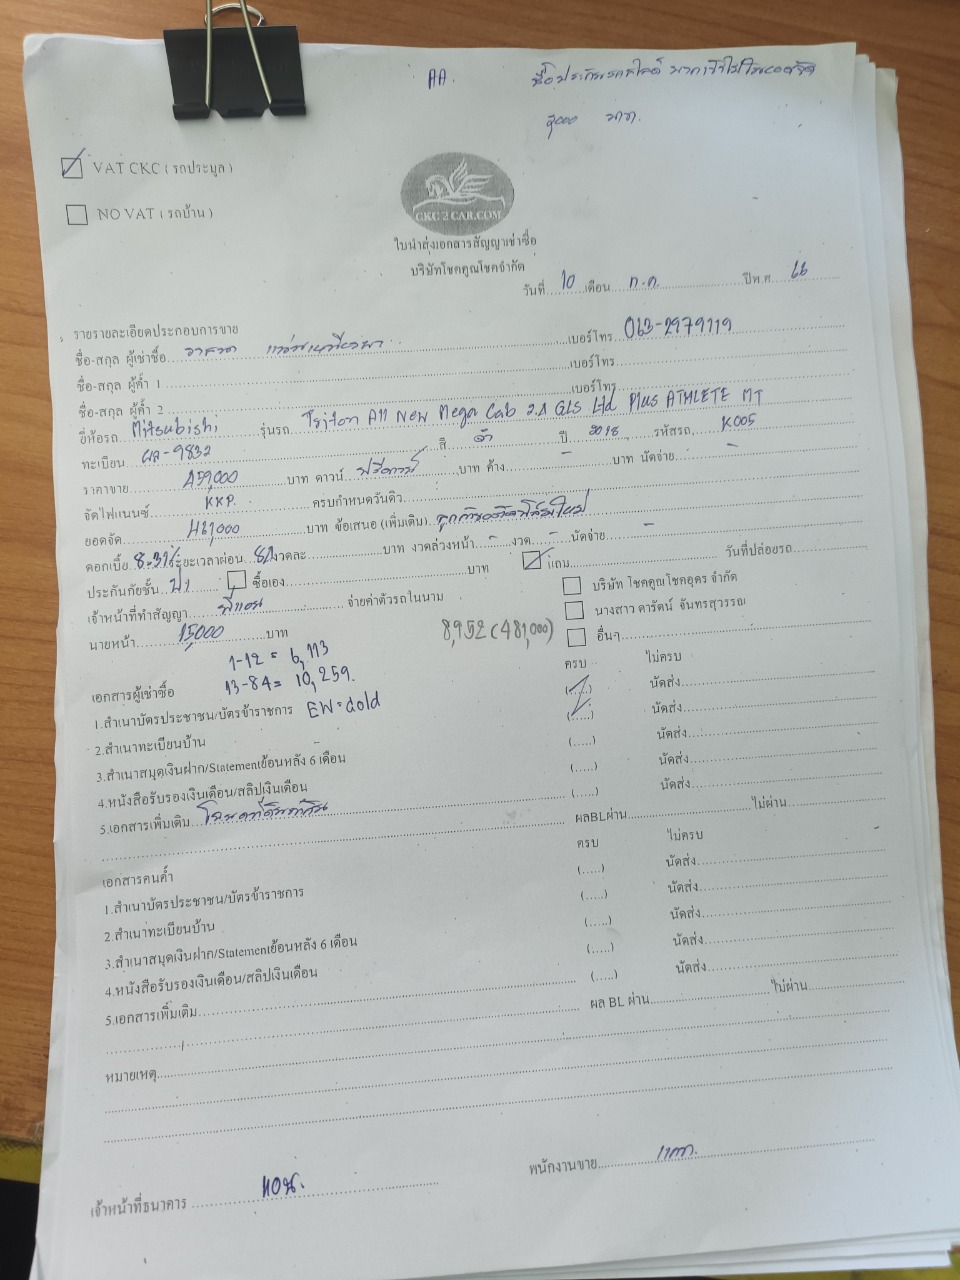 AA.
5,000 บาท.
VAT CKC ( รถประมูล )
NO VAT ( รถบ้าน )
CKC 2 CAR.COM
ใบนำส่งเอกสารสัญญาเช่าซื้อ
บริษัทโชคคูณโชคจำกัด
วันที่ 10 เดือน ก.ค. ปีพ.ศ. 66
รายรายละเอียดประกอบการขาย
ชื่อ-สกุล ผู้เช่าซื้อ เบอร์โทร 063-2979119
ชื่อ-สกุล ผู้ค้ำ 1 เบอร์โทร
ชื่อ-สกุล ผู้ค้ำ 2 เบอร์โทร
ยี่ห้อรถ Mitsubishi รุ่นรถ Triton All New Mega Cab 2.4 GLS Ltd Plus ATHLETE MT
ทะเบียน ผล-9832 สี ดำ ปี 2018 รหัสรถ K005
ราคาขาย 459,000 บาท ดาวน์ ฟรีดาวน์ บาท ค้าง - บาท นัดจ่าย -
จัดไฟแนนซ์ KKP. ครบกำหนดวันคิว
ยอดจัด 461,000 บาท ข้อเสนอ (เพิ่มเติม)
ดอกเบี้ย 8.31% ระยะเวลาผ่อน 84 งวดละ บาท งวดล่วงหน้า - งวด - นัดจ่าย -
ประกันภัยชั้น ป1 ซื้อเอง บาท แถม วันที่ปล่อยรถ
เจ้าหน้าที่ทำสัญญา พี่แอน จ่ายค่าตัวรถในนาม บริษัท โชคคูณโชคอุดร จำกัด
นางสาว ดารัตน์ จันทรสุวรรณ
นายหน้า 15,000 บาท 8,952 (481,000) อื่นๆ
1-12 = 6,113
13-84 = 10,259.
เอกสารผู้เช่าซื้อ ครบ ไม่ครบ
1.สำเนาบัตรประชาชน/บัตรข้าราชการ EW = Gold (.....) นัดส่ง
2.สำเนาทะเบียนบ้าน (.....) นัดส่ง
3.สำเนาสมุดเงินฝาก/Statementย้อนหลัง 6 เดือน (.....) นัดส่ง
4.หนังสือรับรองเงินเดือน/สลิปเงินเดือน (.....) นัดส่ง
5.เอกสารเพิ่มเติม
ผลBLผ่าน ไม่ผ่าน
เอกสารคนค้ำ ครบ ไม่ครบ
1.สำเนาบัตรประชาชน/บัตรข้าราชการ (.....) นัดส่ง
2.สำเนาทะเบียนบ้าน (.....) นัดส่ง
3.สำเนาสมุดเงินฝาก/Statementย้อนหลัง 6 เดือน (.....) นัดส่ง
4.หนังสือรับรองเงินเดือน/สลิปเงินเดือน (.....) นัดส่ง
5.เอกสารเพิ่มเติม (.....) นัดส่ง
ผล BL ผ่าน ไม่ผ่าน
หมายเหตุ
เจ้าหน้าที่ธนาคาร แอน. พนักงานขาย